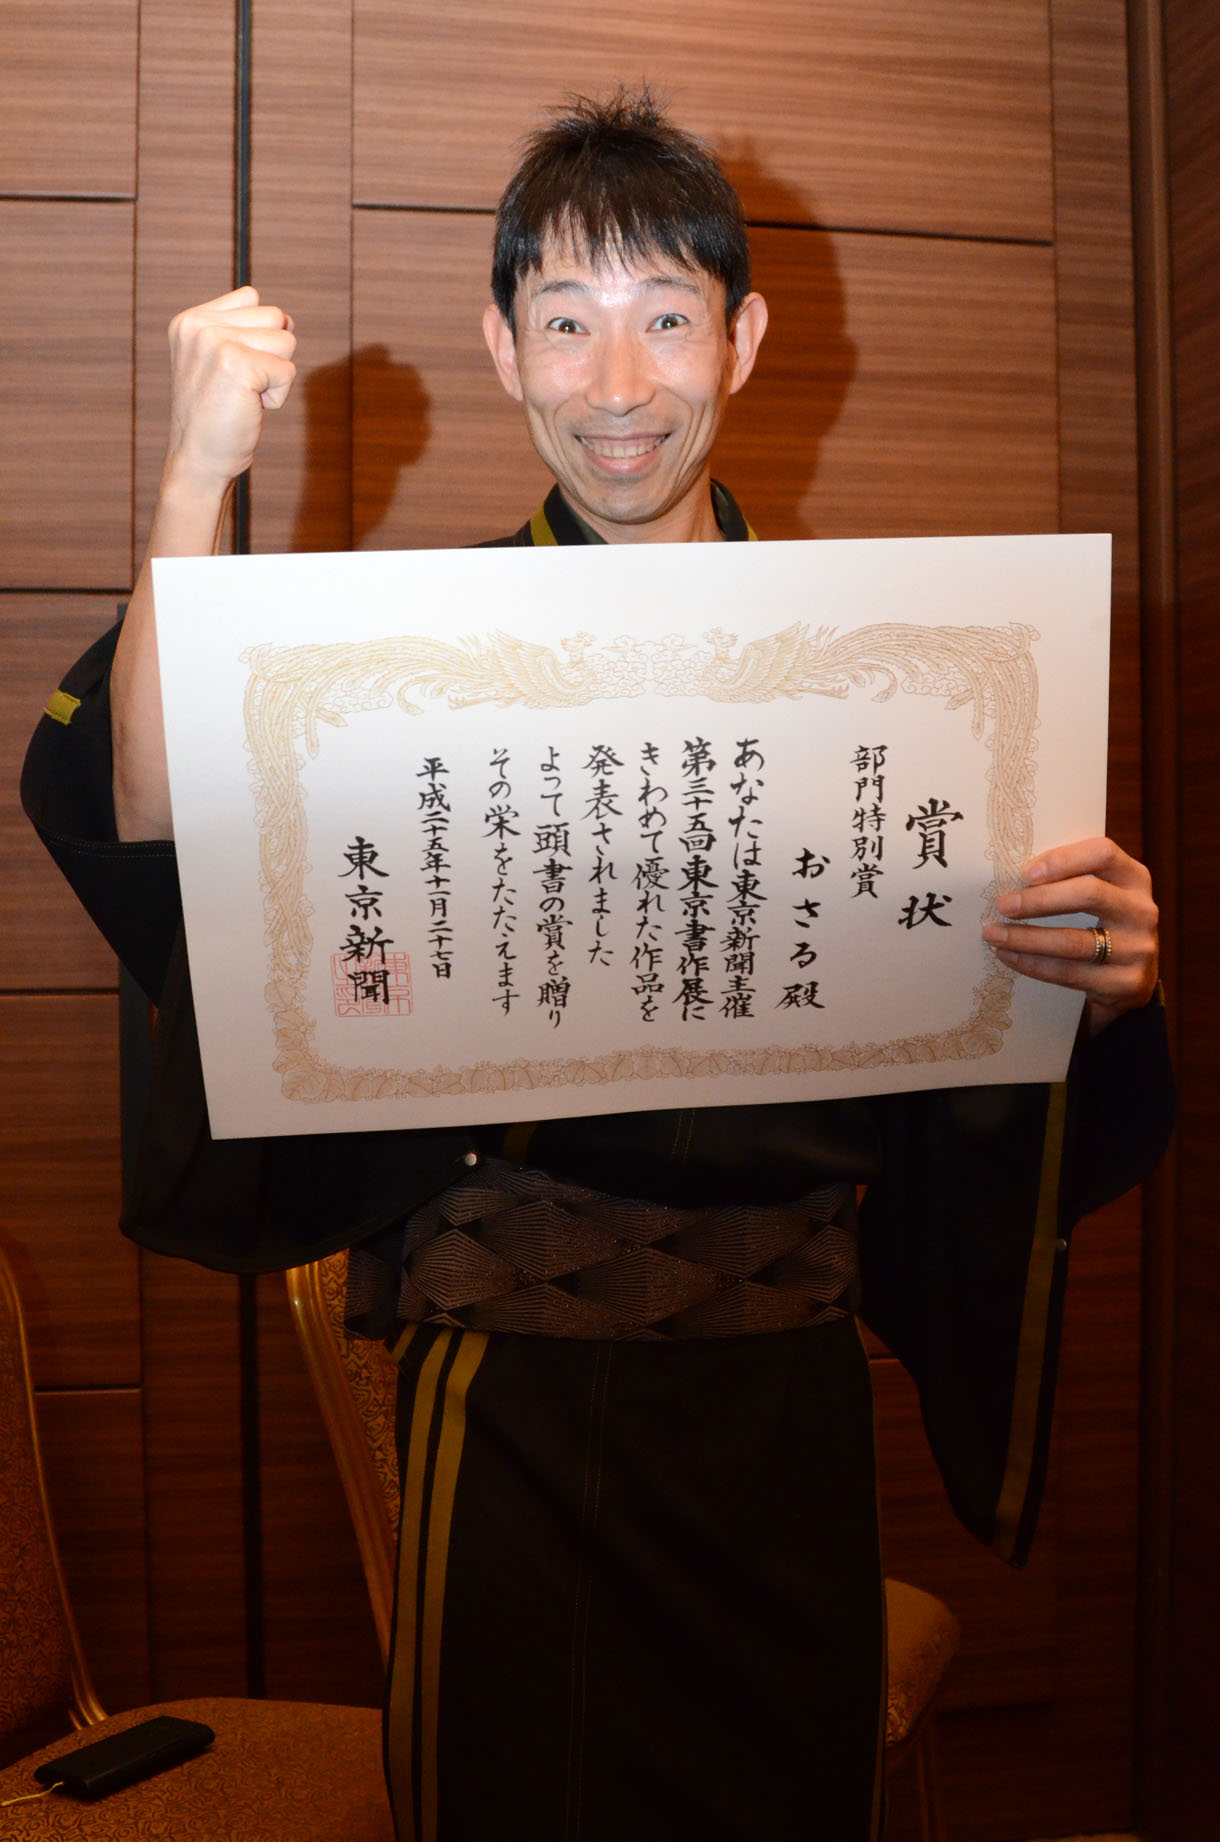 賞状
部門特別賞
おさる殿
あなたは東京新聞主催
第三十五回東京書作展に
きわめて優れた作品を
発表されました
よって頭書の賞を贈り
その栄をたたえます
平成二十五年十一月二十七日
東京新聞